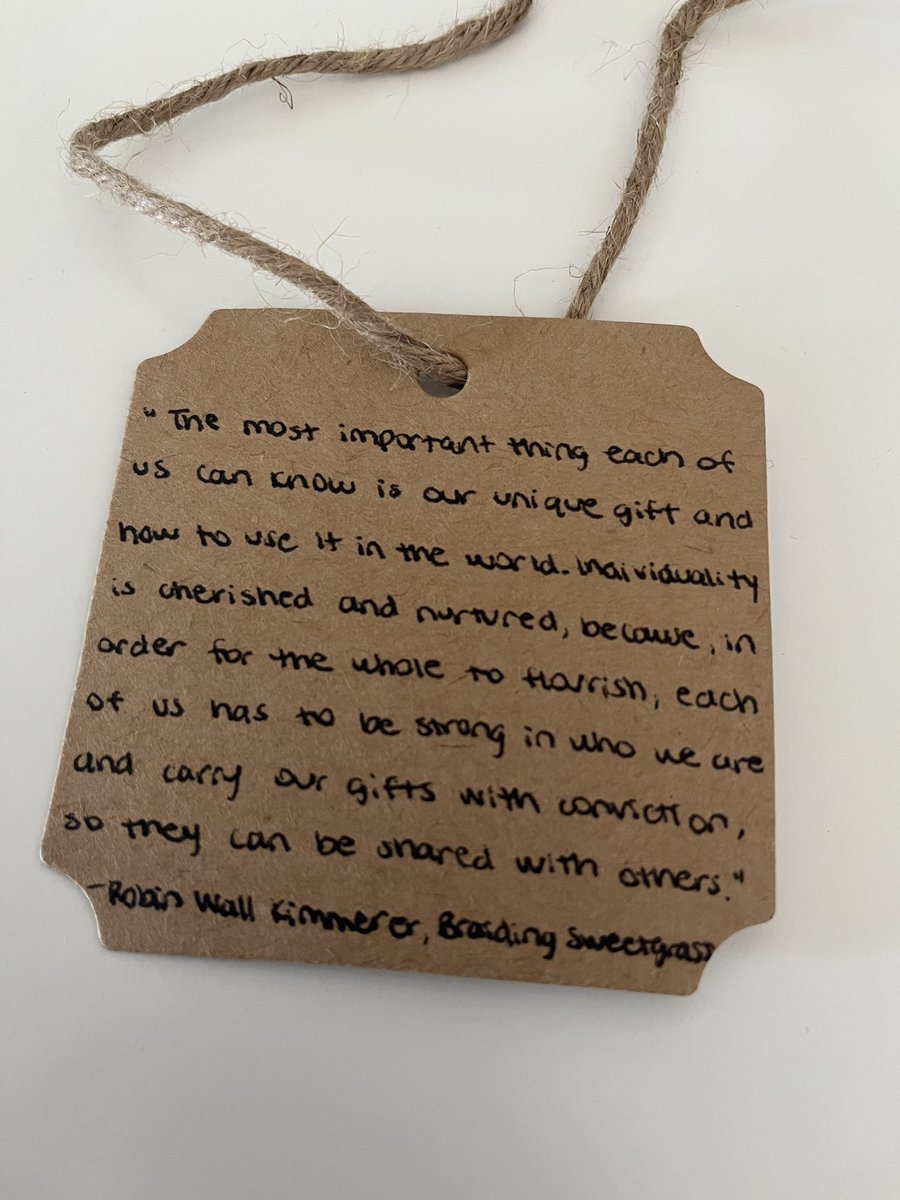 "The most important thing each of
us can know is our unique gift and
how to use it in the world. Individuality
is cherished and nurtured, because, in
order for the whole to flourish, each
of us has to be strong in who we are
and carry our gifts with conviction,
so they can be shared with others."
-Robin Wall Kimmerer, Braiding Sweetgrass